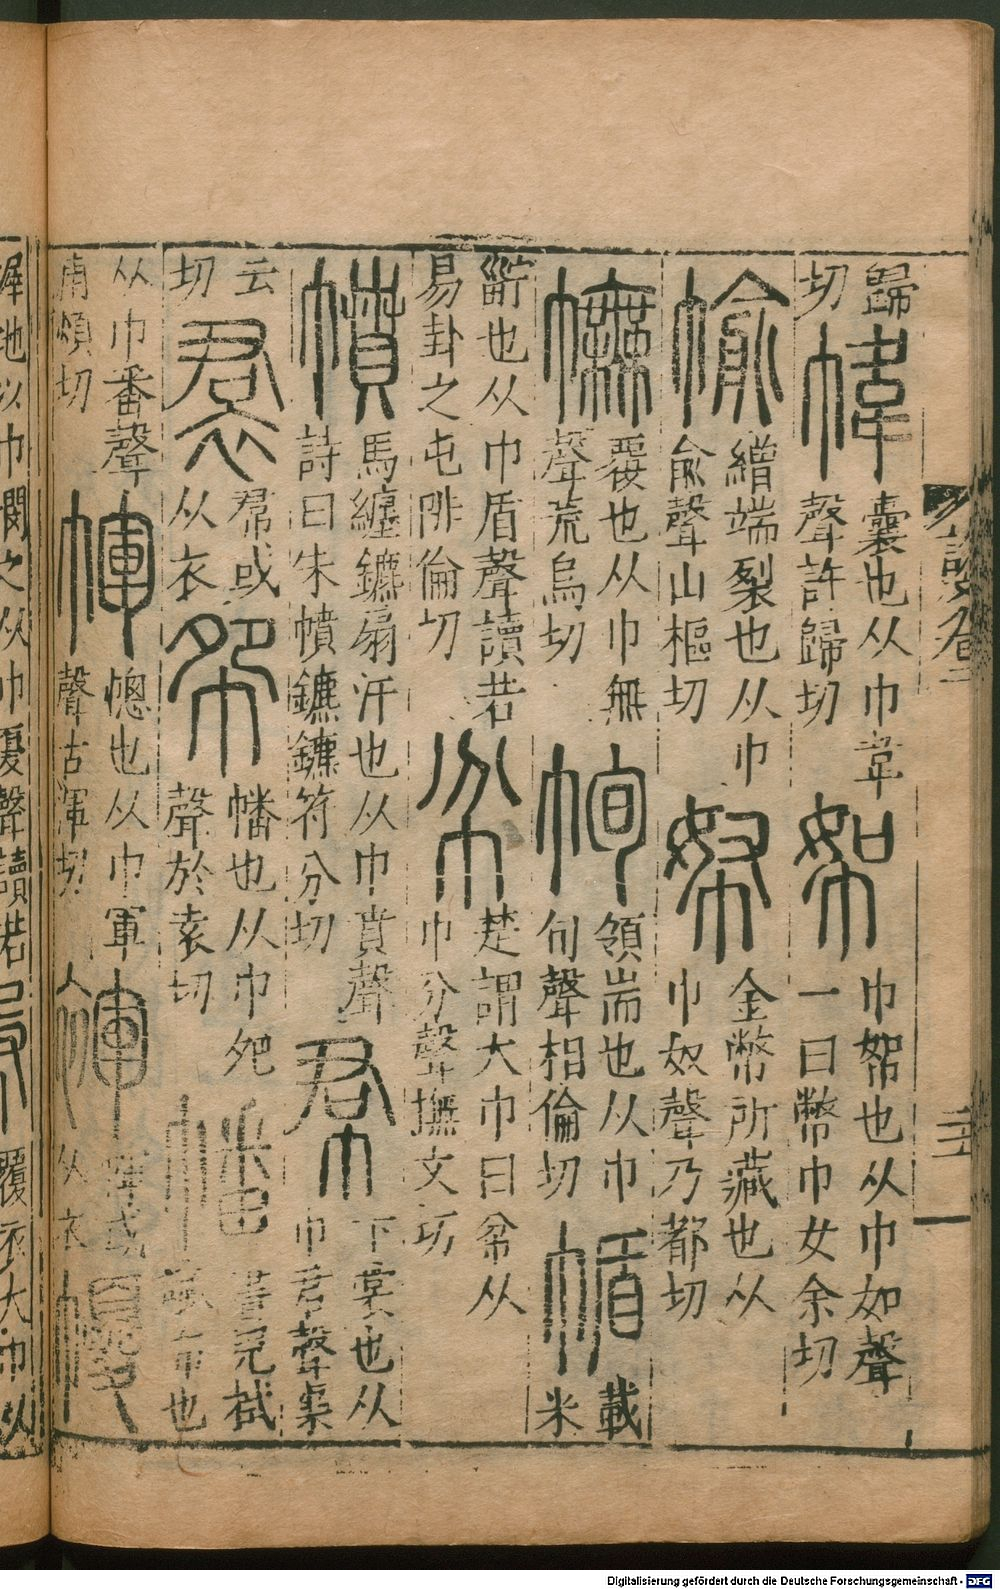 歸
切
幃 囊也从巾韋
聲許歸切
帤 巾帤也从巾如聲
一曰幣巾女余切
㡏 繒端裂也从巾
俞聲山樞切
帑 金幣所藏也从
巾奴聲乃都切
幠 覆也从巾無
聲荒烏切
㡓 領耑也从巾
旬聲相倫切
㡒 載
米
䉛也从巾盾聲讀若
易卦之屯陟倫切
帉 楚謂大巾曰帉从
巾分聲撫文切
幩 馬纏鑣扇汗也从巾賁聲
詩曰朱幩鑣鑣符分切
帬 下裳也从
巾君聲渠
云
切
裠 帬或
从衣
帵 幡也从巾夗
聲於袁切
幡 書兒拭
也
从巾番聲
甫煩切
㡓 幒也从巾軍
聲古渾切
褌 㡓或
从衣
幔
墀地以巾𢅼之从巾夒聲讀若
覆衣大巾从